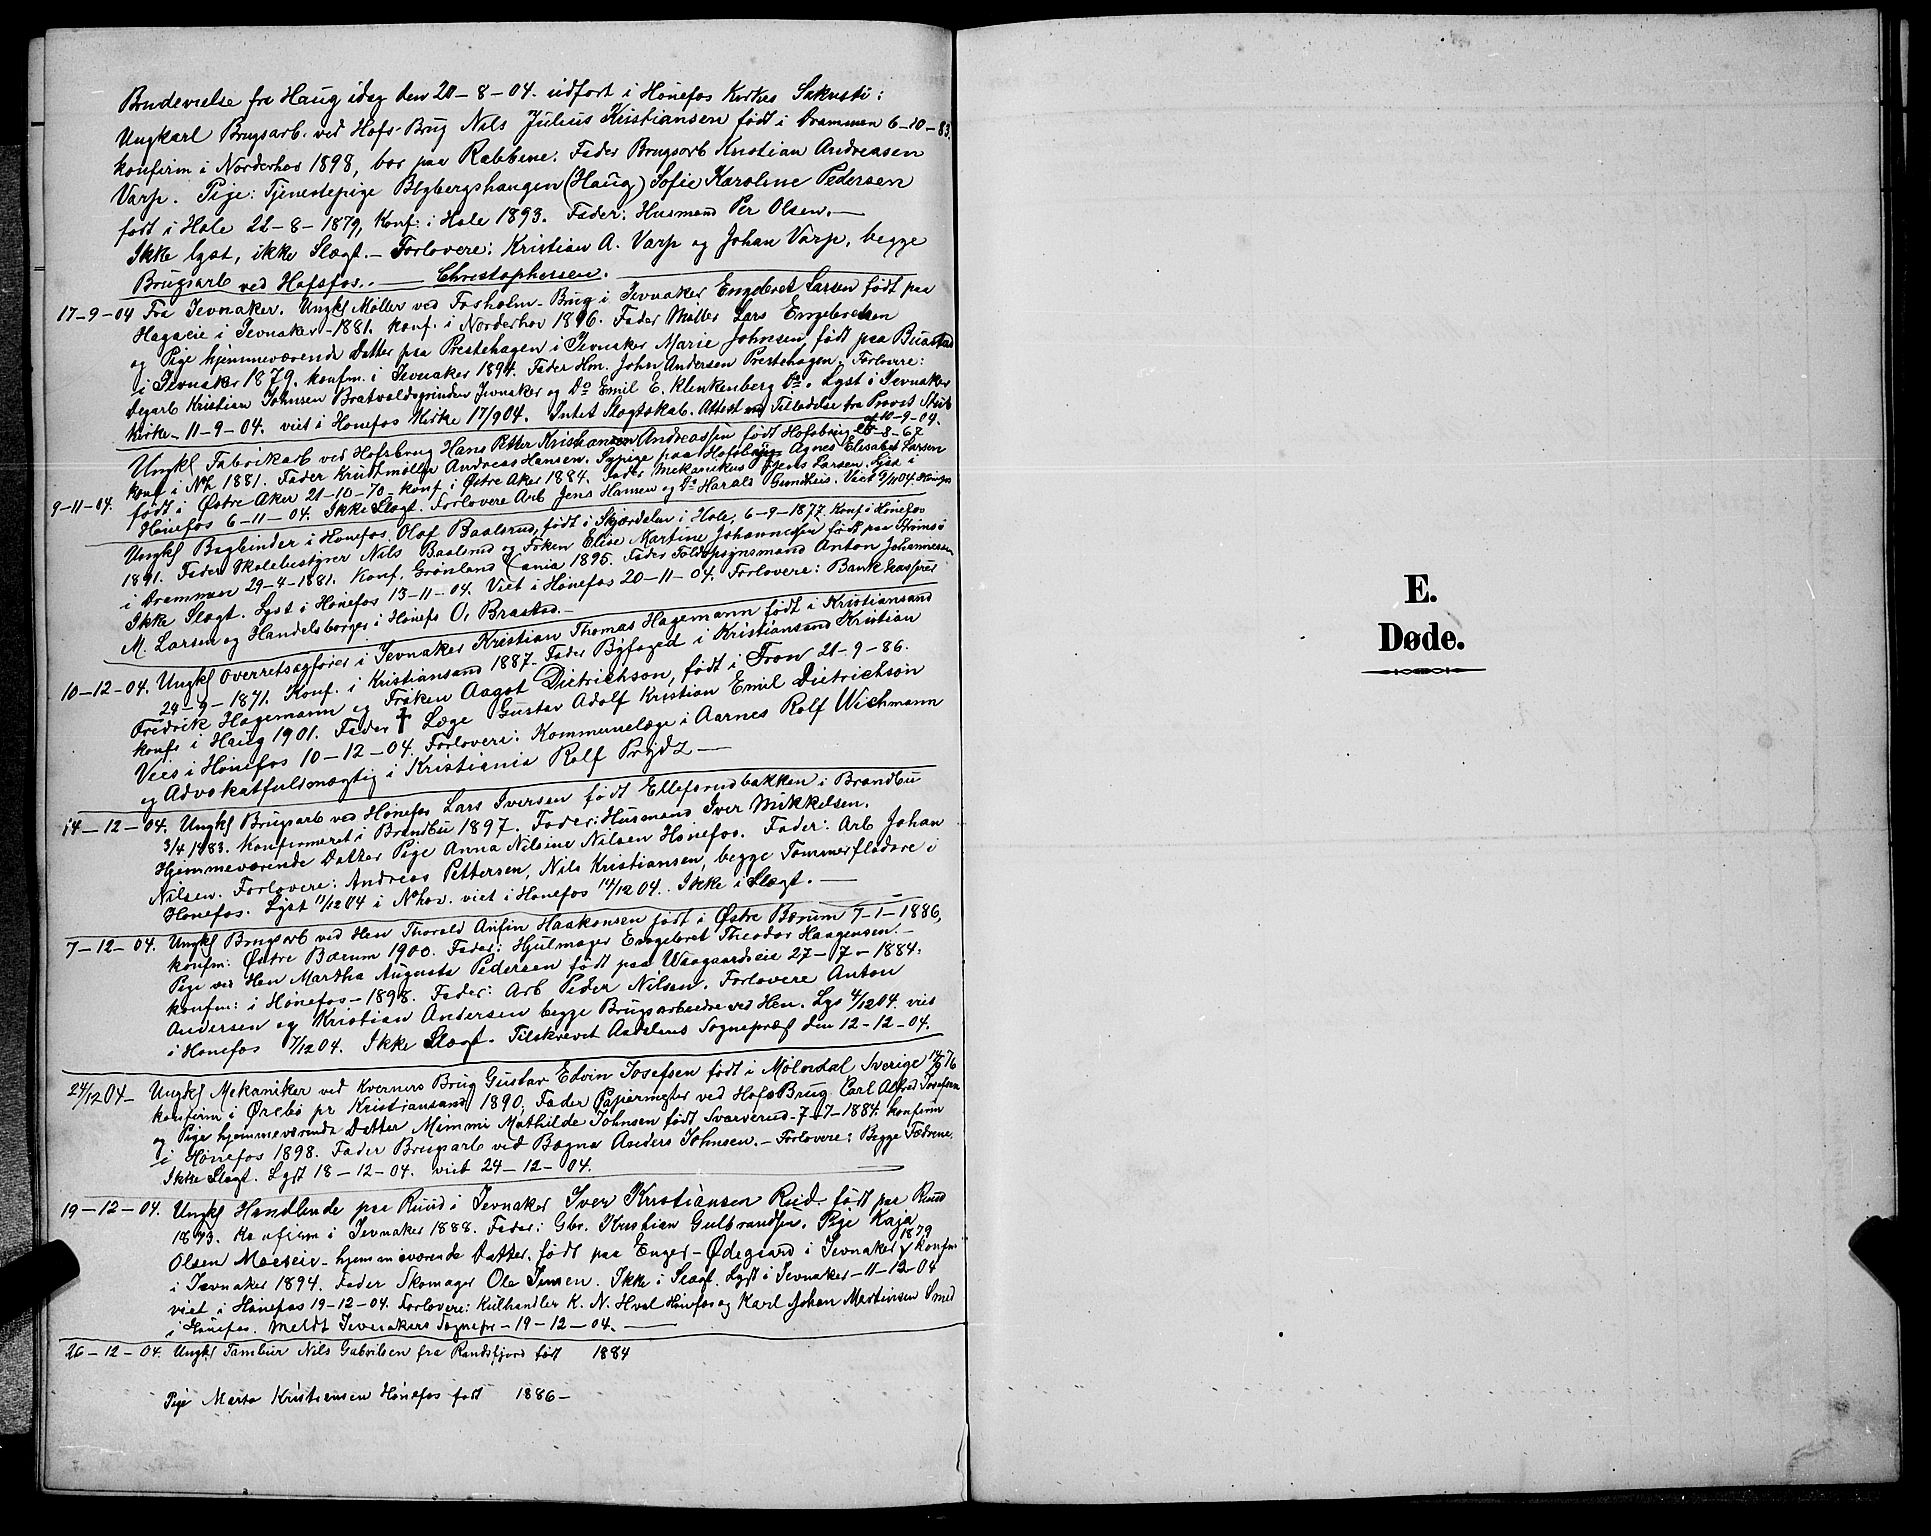 Brudevielse fra Haug idag den 20-8-04. udført i Hønefos Kirkes Sakristi:
Ungkarl Brugsarb. ved Hofs-Brug Nils Julius Kristiansen født i Drammen 6-10-83.
konfirm i Norderhov 1898, bor paa Rabbene. Fader Brugsarb Kristian Andreasen
Varp. Pige: Tjenestepige Bygbergshaugen (Haug) Sofie Karoline Pedersen
født i Hole 22-8-1879, Konf: i Hole 1893. Fader: Husmand Per Olsen.—
Ikke lyst, ikke Slægt.— Forlovere: Kristian A. Varp og Johan Varp, begge
Brugsarb ved Hofsfos.. — Christophersen.
17-9-04 Fra Jevnaker. Ungk Møller ved Fosholm-Brug i Jevnaker Engebret Larsen født paa
Hagaeie i Jevnaker-1881. konf. i Norderhov 1896. Fader Møller Lars Engebretsen
og Pige hjemmeværende Datter paa Prestehagen i Jevnaker Marie Johnsen født paa
i Jevnaker 1879. konfm. i Jevnaker 1894. Fader Hm. John Andersen Prestehagen. Forlovere:
Dagarb Kristian Johnsen Bratvoldsgrinden Jevnaker og Do Emil E. Klenkenberg Do. Lyst i Jevnaker
Kirke - 11-9-04. viet i Hønefos Kirke 17/9 04. Intet Slægtskab. Attest om Tilladelse fra Provst
10-9-04.
Ungk Fabrikarb ved Hofsbrug Hans Petter Kristiansen Andreassen født Hofsbrug -8-67
konf i Nh 1881. Fader Krudtmøller Andreas Hansen. Sypige paa Hofsbrug Agnes Elisabet Larsen
9-11-04. født i Østre Aker 21-10-70 konf i Østre Aker 1884. Fader Mekanikus Jens Larsen. Lyst i
Hønefos 6-11-04. Ikke Slægt. Forlovere Arb Jens Hansen og Do Harald Gundhus. Viet 9/11 04 Hønefos
Ungk Bogbinder i Hønefos Olaf Baalsrud, født i Skjærdalen i Hole, 6-9-1877. Konf i Hønefos
1891. Fader Skolebestyrer Nils Baalsrud og Frøken Elise Martine Johannesen født paa Strømsø
i Drammen 29-4-1881. Konf. Grønland Kania 1895. Fader Toldopsynsmand Anton Johannessen
Ikke Slægt. Lyst i Hønefos 13-11-04. Viet i Hønefos 20-11-04. Forlovere: Bankkasserer
M. Larsen og Handelsborger i Hønefs O. Brastad.—
10-12-04. Ungk Overretssagfører i Jevnaker Kristian Thomas Hagemann født i Kristiansand
24-9-1871. Konf. i Kristiansand 1887. Fader Byfoged i Kristiansand Kristian
Fredrik Hagemann og Frøken Aagot Dietrichson, født i Tron 21-9-86.
konfr i Haug 1901. Fader † Læge Gustav Adolf Kristian Emil Dietrichson
Vies i Hønefos 10-12-04. Forlovere: Kommunelæge i Aarnes Rolf Wichmann
og Advokatfuldmægtig i Kristiania Rolf Prydz —
14-12-04. Ungk Brugsarb ved Hønefos Lars Iversen født Ellefsrudbakken i Brandbu
3/4 1883. Konfirmeret i Brandbu 1897. Fader: Husmand Iver Mikkelsen.
Hjemmeværende Datter Pige Anna Nilsine Nilsen Hønefos. Fader: Arb Johan
Nilsen. Forlovere: Andreas Pettersen, Nils Kristiansen, begge Tømmerflødere i
Hønefos. Lyst 11/12 04 i Nhov. viet i Hønefos 14/12 04. Ikke i Slægt.—
7-12-04. Ungk Brugsarb ved Hen Thorald Anfin Haakonsen født i Østre Bærum 7-1-1886,
konfm: Østre Bærum 1900. Fader: Hjulmager Engebret Theodor Haagensen.—
Pige ved Hen Martha Augusta Pedersen født paa Waagaardseie 27-7-1884.
konfm: i Hønefos-1898. Fader: Arb Peder Nilsen. Forlovere Anton
Andersen og Kristian Andersen begge Brugsarbeidere ved Hen. Lys 4/12 04. vies
i Hønefos 7/12 04. Ikke Slægt. Tilskrevet Aadalens Sognepræst den 12-12-04.
24/12 04- Ungk Mekaniker ved Kværners Brug Gustav Edvin Josefsen født i Mølndal Sverige 76
konfirm i Ørebo pr Kristiansand 1890, Fader Papiermester ved Hofs Brug Carl Alfred Josefsen
og Pige hjemmeværende Datter Mimmi Mathilde Johnsen født Svarverud-7-7-1884. konfirm
i Hønefos 1898. Fader Brugsarb ved Bægna Anders Johnsen.— Forlovere: Begge Fædrene.
Ikke Slægt. Lyst 18-12-04. viet 24-12-04.
19-12-04. Ungk Handlende paa Ruud i Jevnaker Iver Kristiansen Rud. født paa Ruud
1873. Konfirm i Jevnaker 1888. Fader: Gbr. Kristian Gulbrandsen. Pige Kaja
Olsen Moeseie - hjemmeværende Datter, født paa Enger-Ødegaard i Jevnaker 1879 konfm
i Jevnaker 1894. Fader Skomager Ole Jensen. Ikke i Slægt. Lyst i Jevnaker-11-12-04
viet i Hønefos 19-12-04. Forlovere: Kulhandler K. N. Hval Hønefos og Karl Johan Martinsen Smed
i Hønefos. Meldt Jevnakers Sognepr-19-12-04.—
26-12-04. Ungk Tambur Nils Gabrielsen fra Randsfjord født 1884
Pige Marta Kristiensen Hønefos født 1886—
E.
Døde.